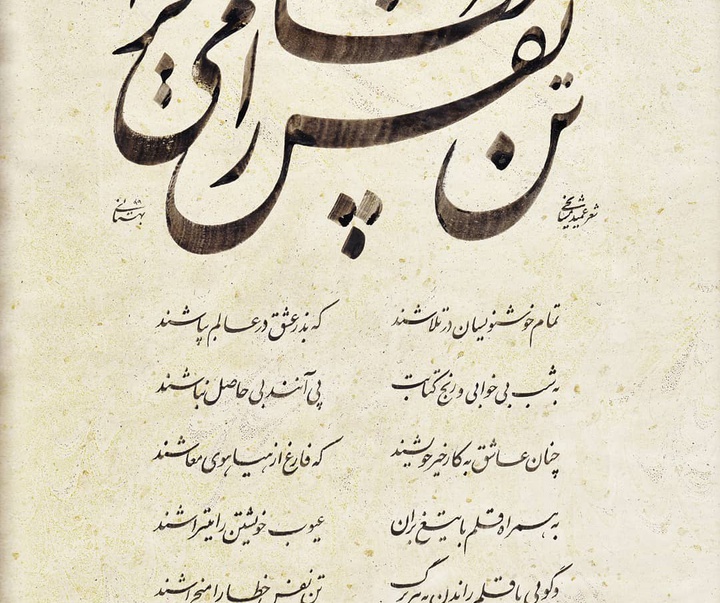 تن نفس را می
شعر عمید مشایخی
تمام خوشنویسان در تلاشند که بذر عشق در عالم بپاشند
به شب بی‌خوابی و رنج کتابت پی آنند بی حاصل نباشند
چنان عاشق به کار خیر خویشند که فارغ از هیاهوی معاشند
به همراه قلم با تیغ بران عیوب خویشتن را میتراشند
تو گویی با قلم راندن به هر برگ تن نفس خطا را میخراشند